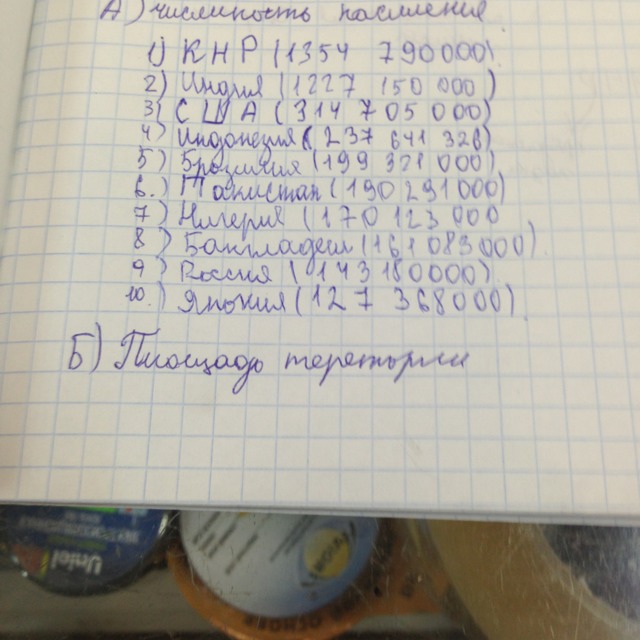 А) численность населения
1) КНР (1354 790000)
2) Индия (1227 150 000)
3) США (314 705 000)
4) Индонезия (237 641 326)
5) Бразилия (199 321 000)
6.) Пакистан (190 291000)
7) Нигерия (170 123 000
8) Бангладеш (161 083000)
9) Россия (143 180000)
10.) Япония (127 368000)
Б) Площадь теретории
Uniel